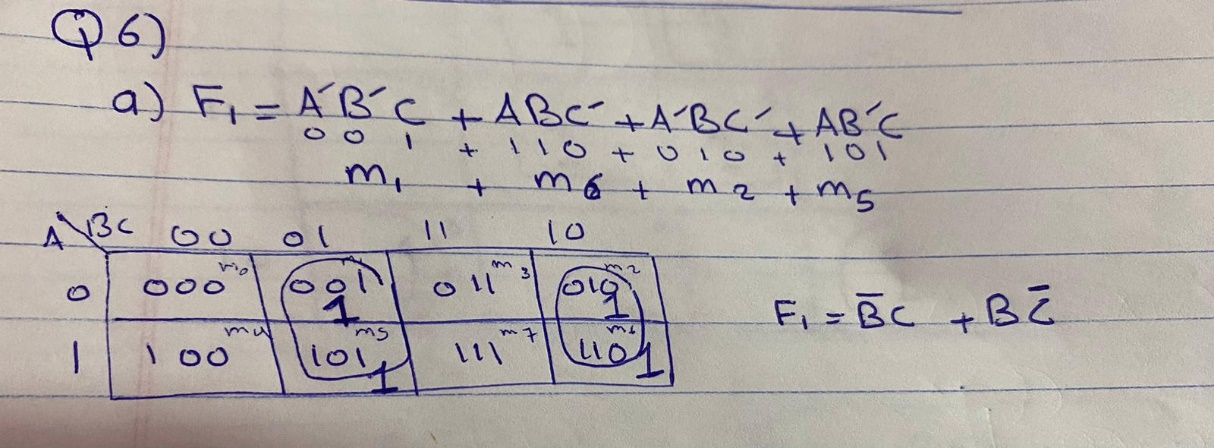 Q6)
a) F₁ = A′B′C + ABC′ + A′BC′ + AB′C
0 0 1 + 110 + 010 + 101
m₁ + m6 + m₂ + m₅
A \ BC 00 01 11 10
0 000 m₀ 001 1 011 m₃ 010 m₂ 1
1 100 m₄ 101 m₅ 1 111 m₇ 110 m₆ 1
F₁ = B̅C + BC̅